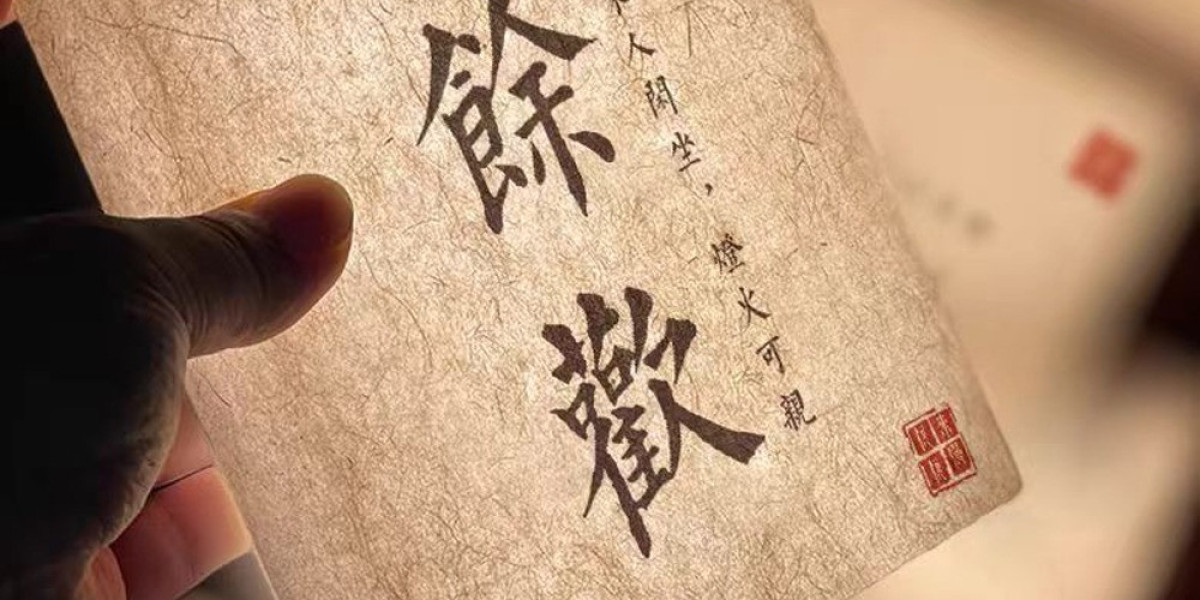 餘歡
人閑坐，燈火可親